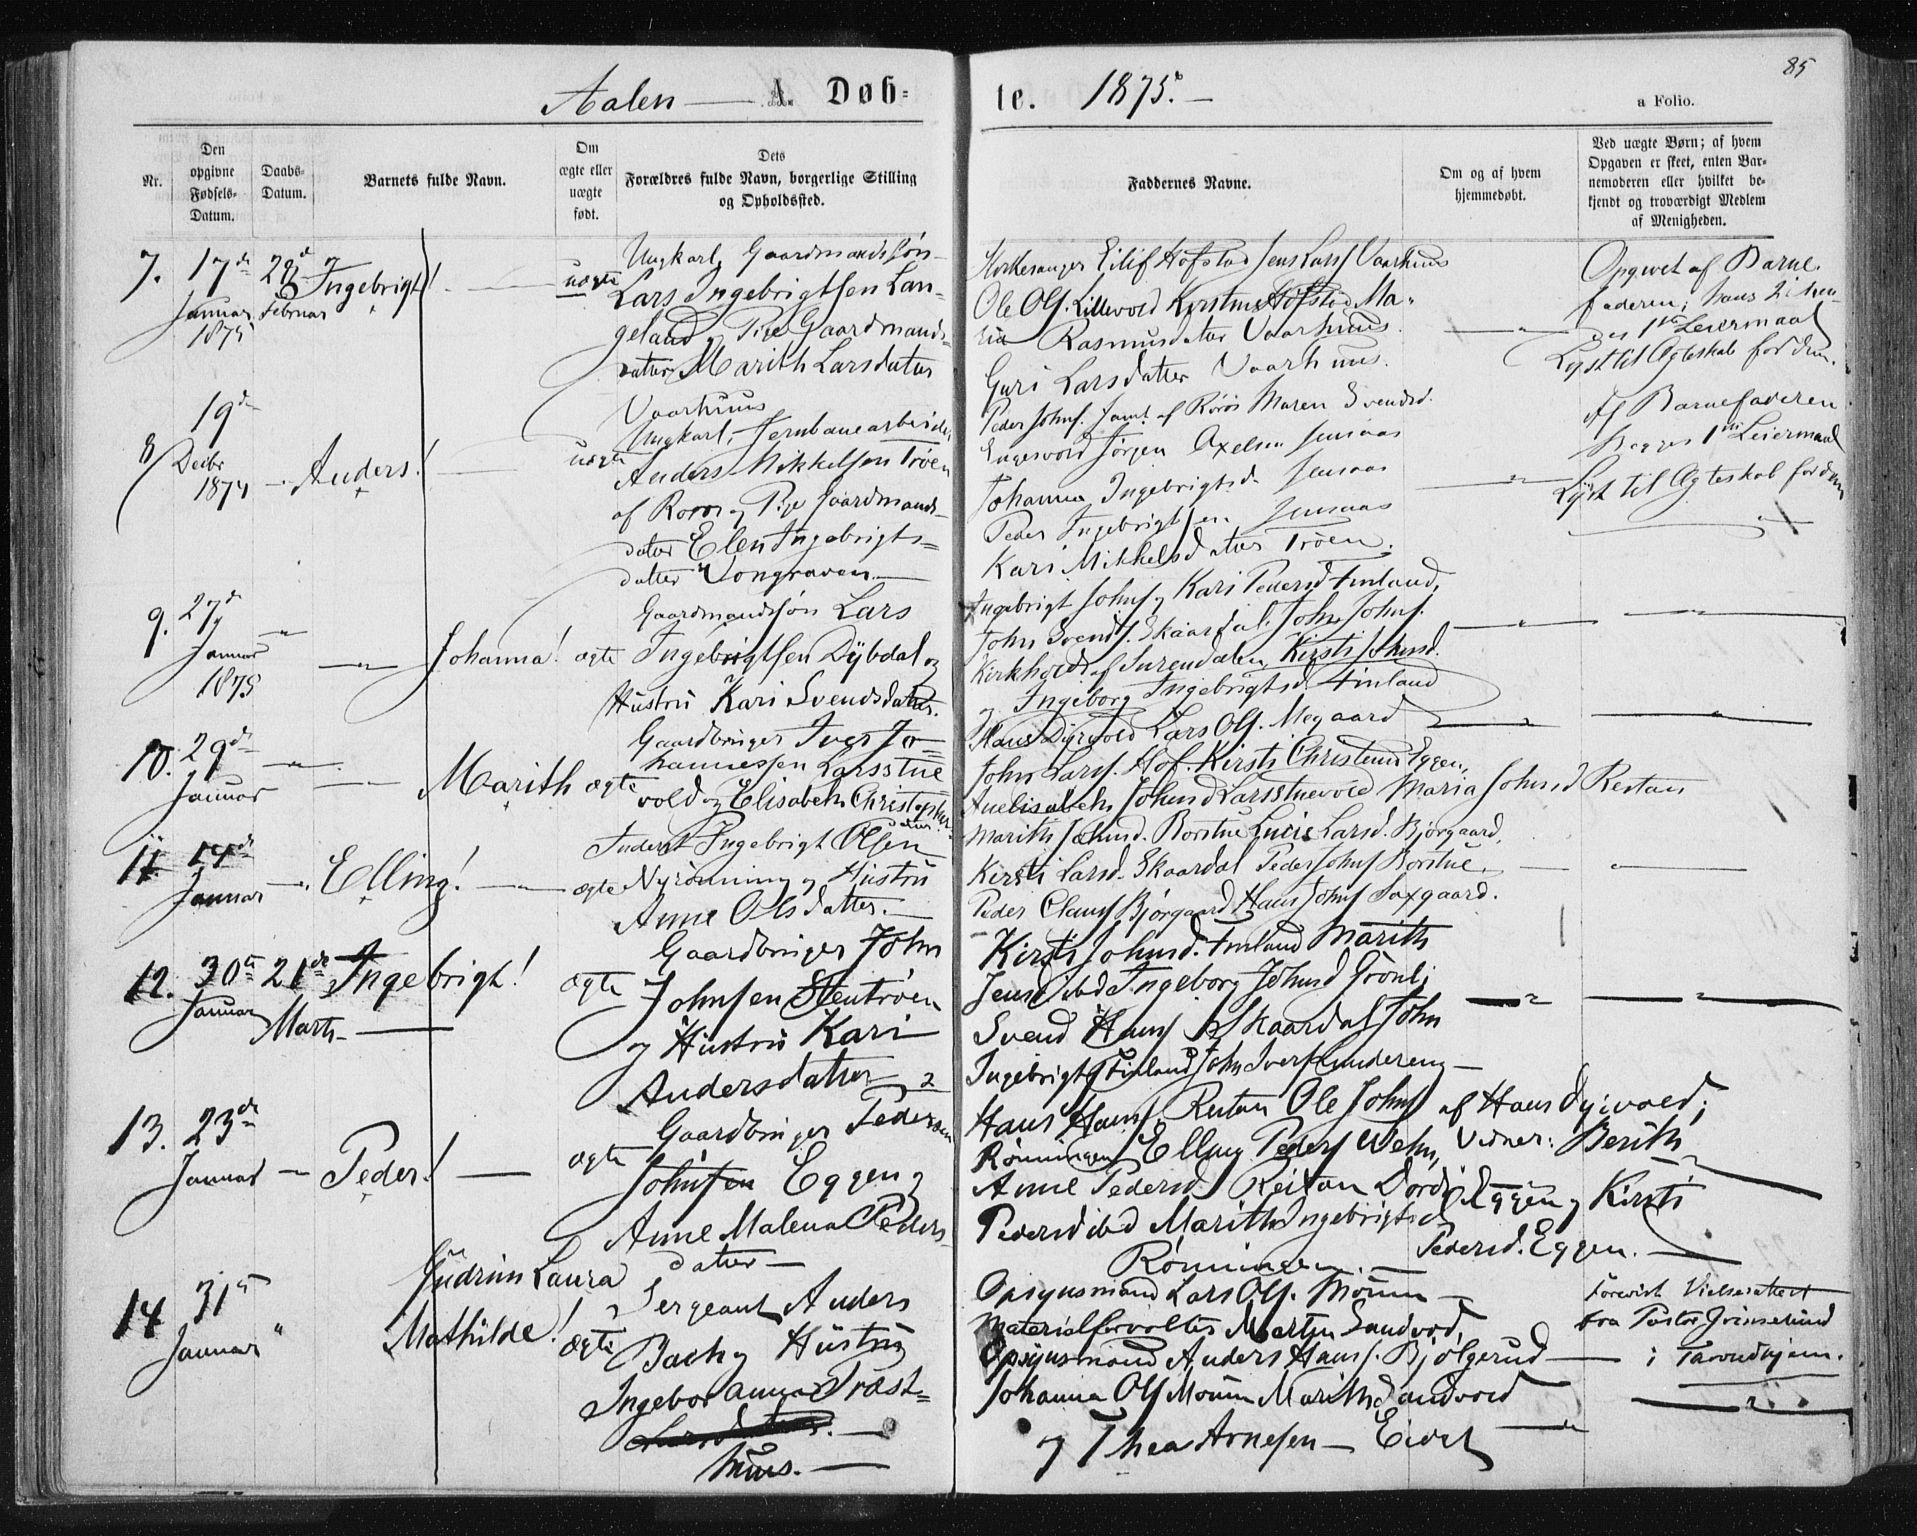 85
Aalen — A. Døb-
te. 1875. —
a Folio.
Nr.
Den opgivne Fødsels-Datum.
Daabs-Datum.
Barnets fulde Navn.
Om ægte eller uægte født.
Dets Forældres fulde Navn, borgerlige Stilling og Opholdssted.
Faddernes Navne.
Om og af hvem hjemmedøbt.
Ved uægte Børn; af hvem Opgaven er skeet, enten Barnemoderen eller hvilket bekjendt og troværdigt Medlem af Menigheden.
7. 17de Januar 1875
28d Februar
Ingebrigt!
uægte
Ungkarl, Gaardmandssøn
Lars Ingebrigtsen Lan-
geland, Pige Gaardmands-
datter Marith Larsdatter
Vaarhuus
Kirkesanger Eilif Hofstad Jens Larss Vaarhuus
Ole Ols. Lillevold Kirstine Hofstad Ma-
ria Rasmusdatter Vaarhuus.
Guri Larsdatter Vaarhuus.
Opgivet af Barne
faderen; hans 2t hen-
des 1ste Leiermaal
Lyst til Ægteskab for dem.
8 19de Decbr 1874
Anders!
uægte
Ungkarl, Jernbanearbeider
Anders Mikkelsen Trøen
af Røros og Pige Gaardmands-
datter Elen Ingebrigts-
datter Vongraven —
Peder Johns. Jamt af Røros Maren Svendsd.
Engesvold Jørgen Axelsen Jensaas
Johanna Ingebrigtsd. Jensaas
Peder Ingebrigtsen Jensaas
Kari Mikkelsdatter Trøen.
Af Barnefaderen
Begges 1ste Leiermaal
Lyst til Ægteskab for dem
9. 27d Januar 1875
Johanna!
ægte
Gaardmandssøn Lars
Ingebrigtsen Dybdal og
Hustru Kari Svendsdatter.
Ingebrigt Johns. og Kari Pedersd Finland,
John Svends. Skaardal, John Johns.
Kirkhold af Surendalen Kirsti Johnsd.
og Ingeborg Ingebrigtsd. Finland
10. 29de Januar
Marith
ægte
Gaardbruger Iver Jo-
hannessen Larsstue
vold og Elisabeth Christopher-
datter.
Hans Dyrvold Lars Ols. Megaard
John Larss. Hof. Kirsti Christensd Eggen,
Anelisabeth Johnsd Larsstuevold Maria Johnsd Reitan
11 14de Januar
Elling!
ægte
Inderst Ingebrigt Olsen
Nyrønning og Hustru
Anne Olsdatter. —
Marith Johnsd. Borstue Lucie Larsd. Bjørgaard,
Kirsti Larsd. Skaardal Peder Johns Borstue,
Peder Clauss Bjørgaard, Hans Johns Saxgaard.
12. 30te Januar
21de Marts —
Ingebrigt!
ægte
Gaardbruger John
Johnsen Stentrøen
og Hustru Kari
Andersdatter
Kirsti Johnsd. Finland Marith
Jensd ibd Ingeborg Johnsd Grønli
Svend Hans. Skaardal John
Ingebrigts Finland John Ivers Endereng —
13. 23de Januar
Peder!
ægte
Gaardbruger Pedersen
Eggen og
Anne Malena Peders-
datter —
Hans Hans. Reitan Ole Johns
Rønningen Elling Peders Wehn,
Anne Pedersd. Reitan Dordi
Pedersd ibd Marith Ingebrigtsd
Rønningen.
af Hans Dyrvold;
Vidner: Berith
Eggen og Kirsti
Pedersd. Eggen. —
14 31te Januar
Gudrun Laura
Mathilde!
ægte
Sergeant Anders
Bach og Hustru
Ingebor Anna Træst-
huus. —
Opsynsmand Lars Ols. Moum —
Materialforvalter Morten Sandvold,
Opsynsmand Anders Hans. Bjølgerud
Johanna Ols Moum Marith Sandvold
og Thea Arnesen — Eidet
Forevist Vielsesattest
fra Pastor
i Trondhjem.